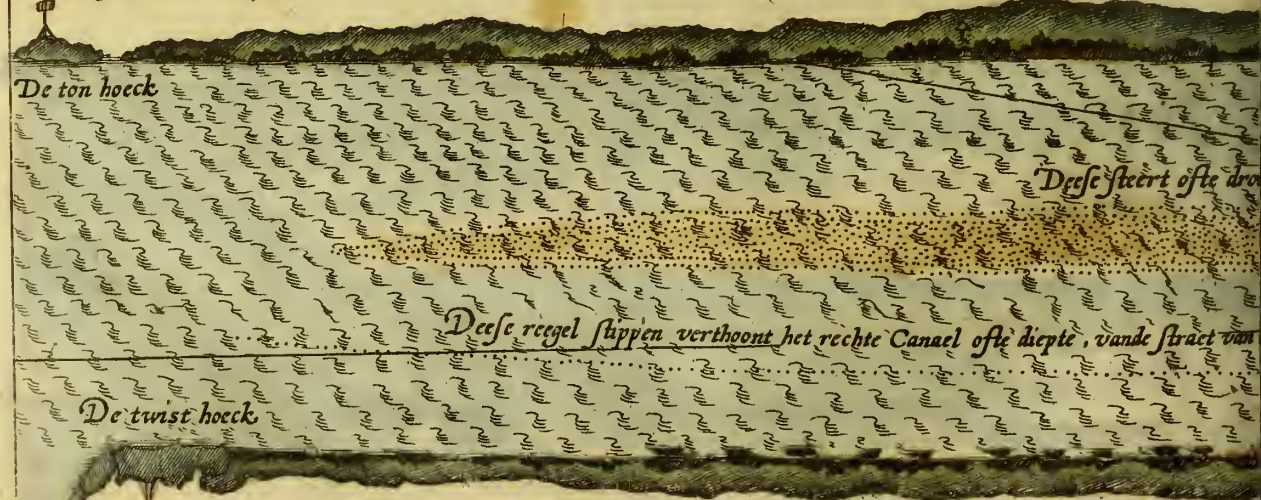 De ton hoeck
Deeſe ſteert ofte dro
Deeſe reegel ſtippen verthoont het rechte Canael ofte diepte, vande ſtraet van
De twist hoeck